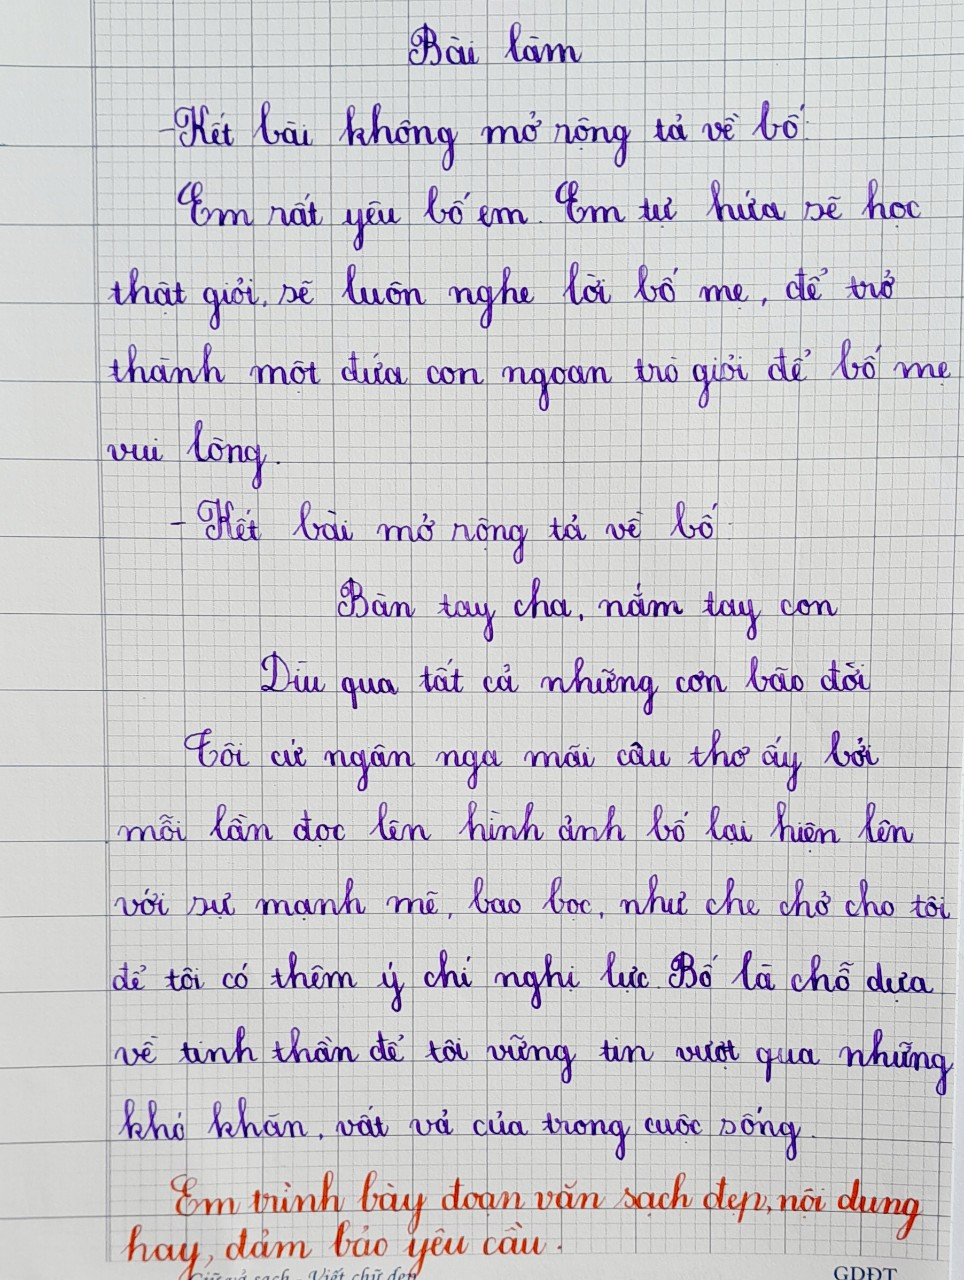 Bài làm
- Kết bài không mở rộng tả về bố
Em rất yêu bố em. Em tự hứa sẽ học
thật giỏi, sẽ luôn nghe lời bố mẹ, để trở
thành một đứa con ngoan trò giỏi để bố mẹ
vui lòng.
- Kết bài mở rộng tả về bố
Bàn tay cha, nắm tay con
Dìu qua tất cả những cơn bão đời
Tôi cứ ngân nga mãi câu thơ ấy bởi
mỗi lần đọc lên hình ảnh bố lại hiện lên
với sự mạnh mẽ, bao bọc, như che chở cho tôi
để tôi có thêm ý chí nghị lực. Bố là chỗ dựa
về tinh thần để tôi vững tin vượt qua những
khó khăn, vất vả của trong cuộc sống.
Em trình bày đoạn văn sạch đẹp, nội dung
hay, đảm bảo yêu cầu.
sạch - Viết chữ đẹp
GDĐT